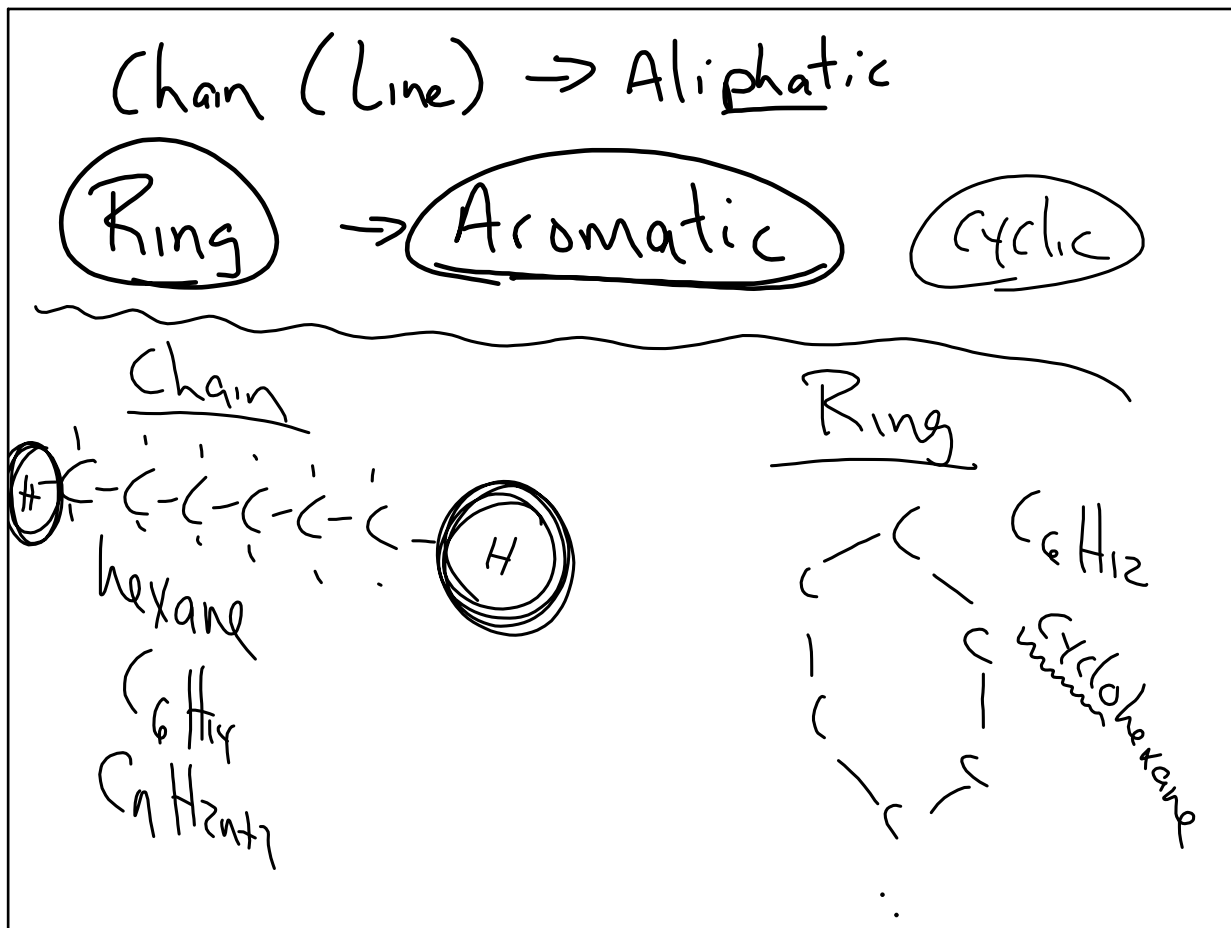 Chain (Line) → Aliphatic
Ring → Aromatic cyclic
Chain
Ring
H C - C - C - C - C - C - H
hexane
C6H14
CnH2n+2
C
C
C
C
C
C
C6H12
Cyclohexane